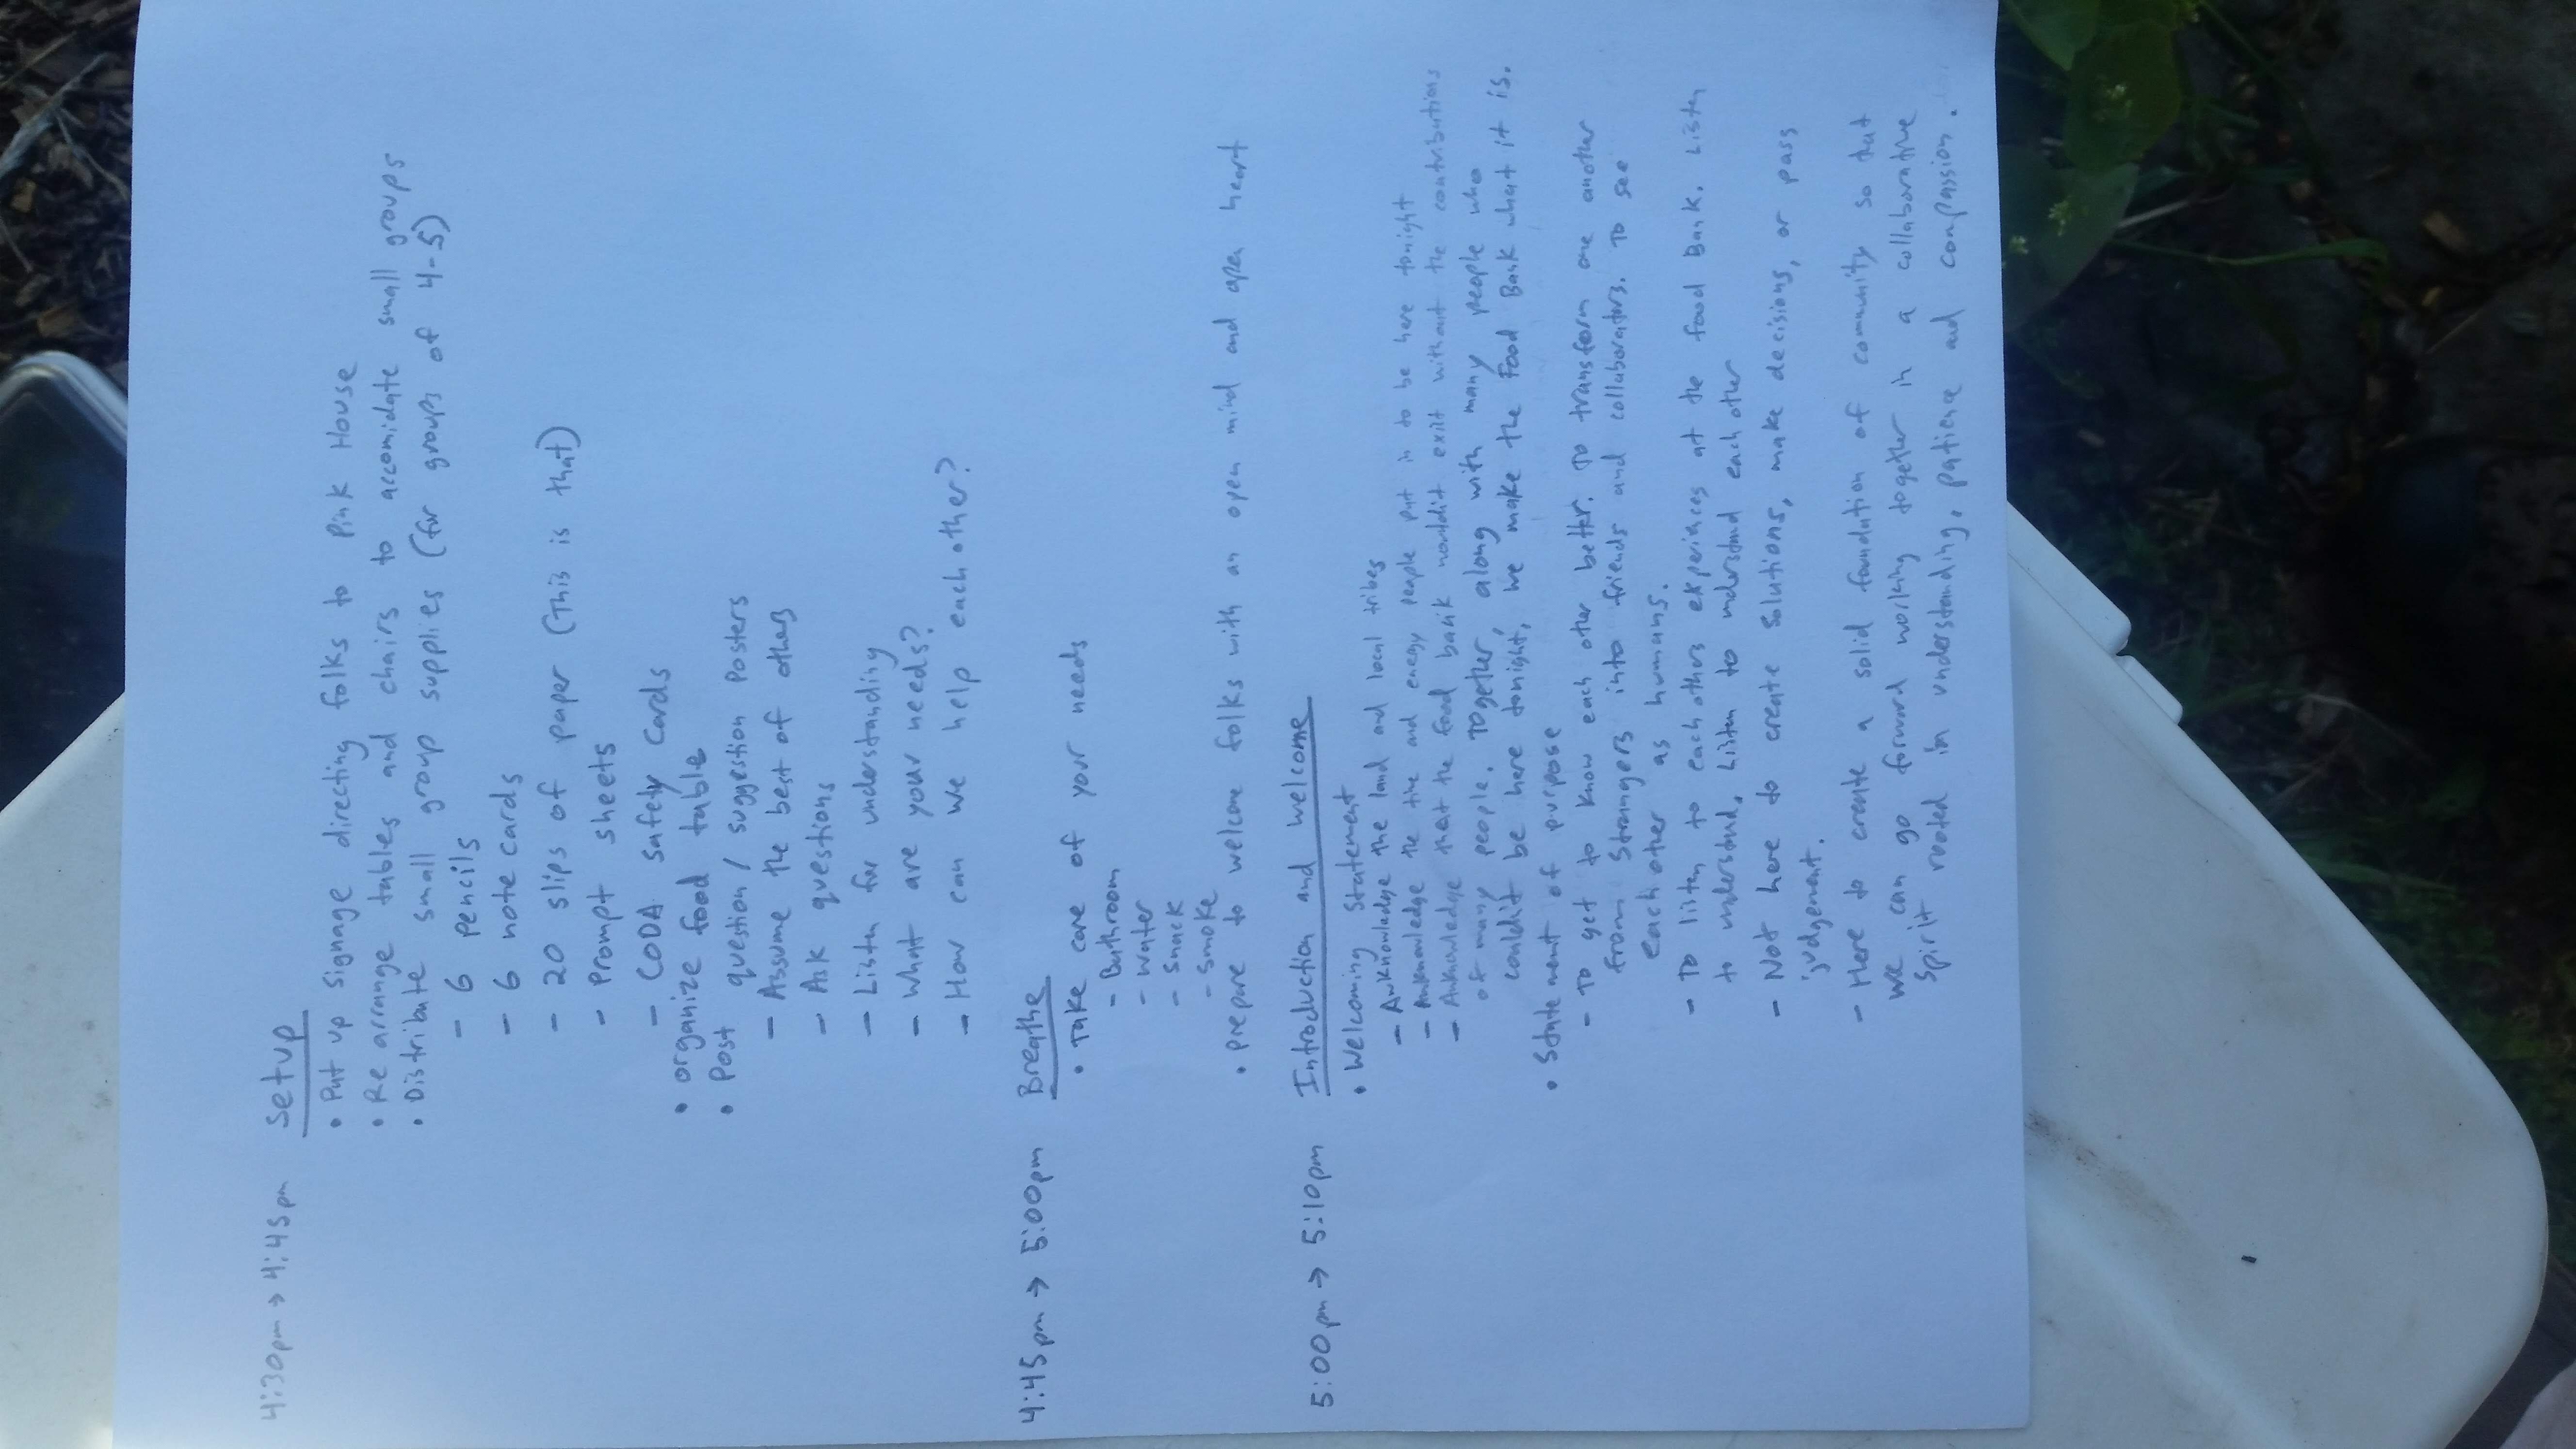 4:30pm → 4:45pm Setup
• Put up signage directing folks to Pink House
• Re arrange tables and chairs to accomidate small groups
• Distribute small group supplies (for groups of 4-5)
- 6 pencils
- 6 note cards
- 20 slips of paper (This is that)
- Prompt sheets
- CODA safety cards
• organize food table
• Post question / suggestion Posters
- Assume the best of others
- Ask questions
- Listen for understanding
- What are your needs?
- How can we help each other?
4:45pm → 5:00pm Breathe
• Take care of your needs
- Bathroom
- Water
- Snack
- Smoke
• Prepare to welcome folks with an open mind and open heart
5:00pm → 5:10pm Introduction and welcome
• Welcoming Statement
- Awknowledge the land and local tribes
- Awknowledge the time and energy people put in to be here tonight
- Awknowledge that the food bank wouldn't exist without the contributions
of many people. Together, along with many people who
couldn't be here tonight, we make the Food Bank what it is.
• Statement of purpose
- To get to know each other better. To transform one another
from strangers into friends and collaborators. To see
each other as humans.
- To listen to each others experiences at the food Bank. Listen
to understand. Listen to understand each other
- Not here to create solutions, make decisions, or pass
judgement.
- Here to create a solid foundation of community so that
we can go forward working together in a collaborative
spirit rooted in understanding, patience and compassion.